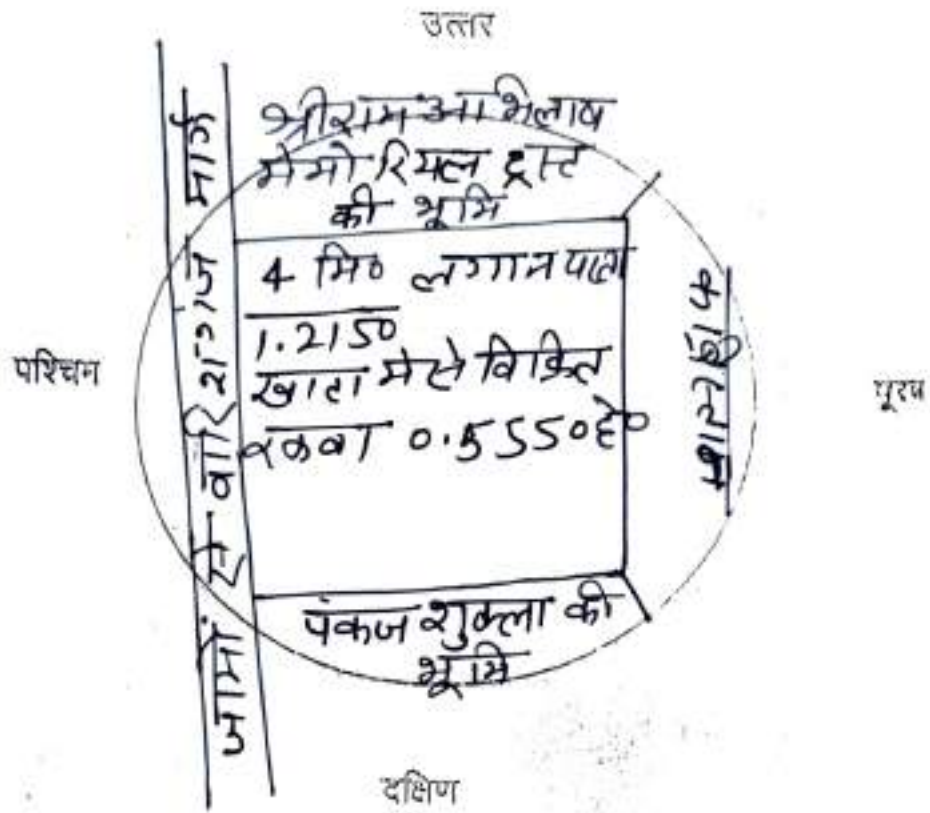 उत्तर
श्रीराम अभिलाष
मेमोरियल ट्रस्ट
की भूमि
4 मि० लगान पाता
1.2150
खाता मेसे विक्रित
रकबा 0.5550हे०
पश्चिम
से वारिशगंज मार्ग
पूरब
पंकज शुक्ला की
भूमि
दक्षिण